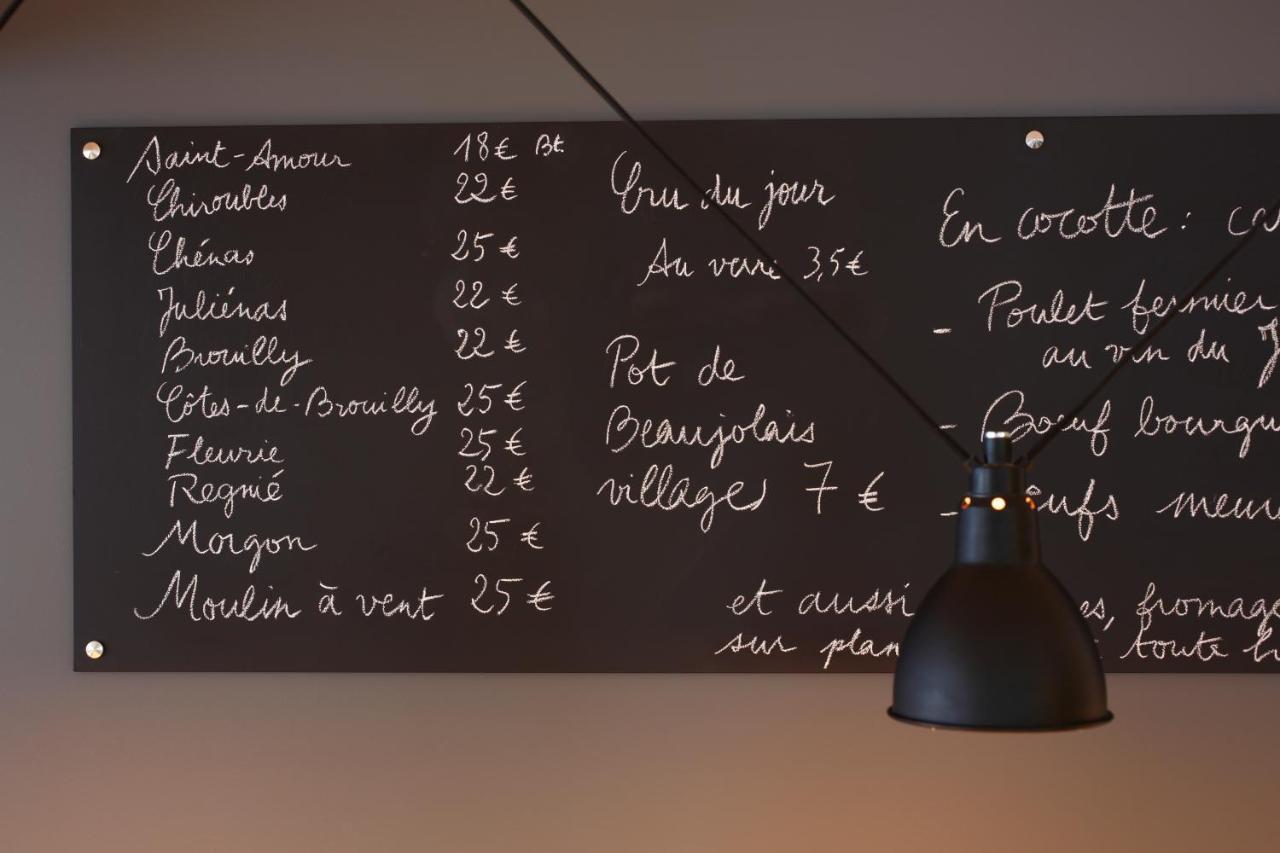 Saint-Amour 18€ Bt.
Chiroubles 22€
Chénas 25€
Juliénas 22€
Brouilly 22€
Côtes-de-Brouilly 25€
Fleurie 25€
Regnié 22€
Morgon 25€
Moulin à vent 25€
Cru du jour
Au verre 3,5€
Pot de
Beaujolais
villages 7 €
En cocotte :
- Poulet fermier
au vin du
- Bœuf
-
et aussi
sur
toute